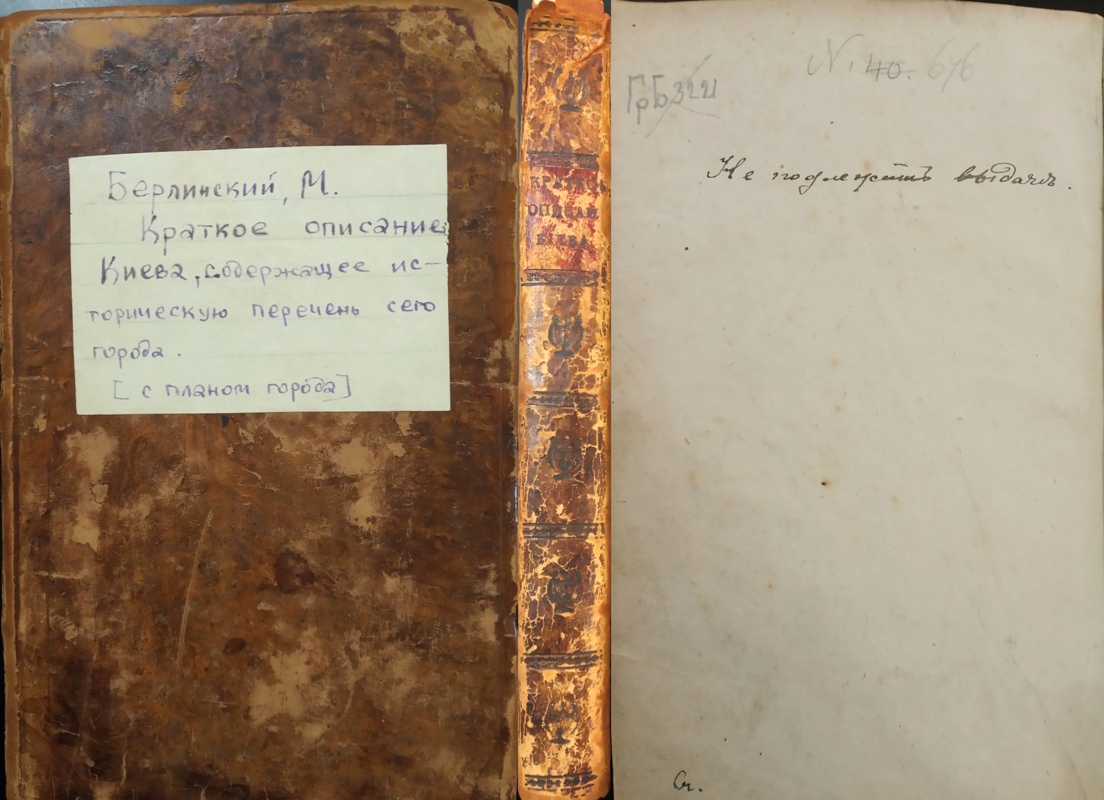 Берлинский, М.
Краткое описание
Киева, содержащее ис-
торическую перечень сего
города.
[с планом города]
КРАТКОЕ
ОПИСАН
КІЕВА
N. 40. 676
ГрБ 3221
Не подлежитъ выдачѣ.